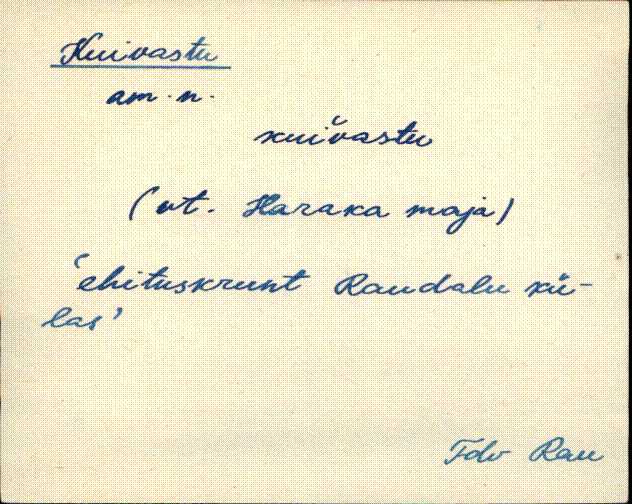 Kuivastu
am. n.
kuiv̆astu
(vt. Haraka maja)
'ehituskrunt Raudalu kü-
las'
Rau